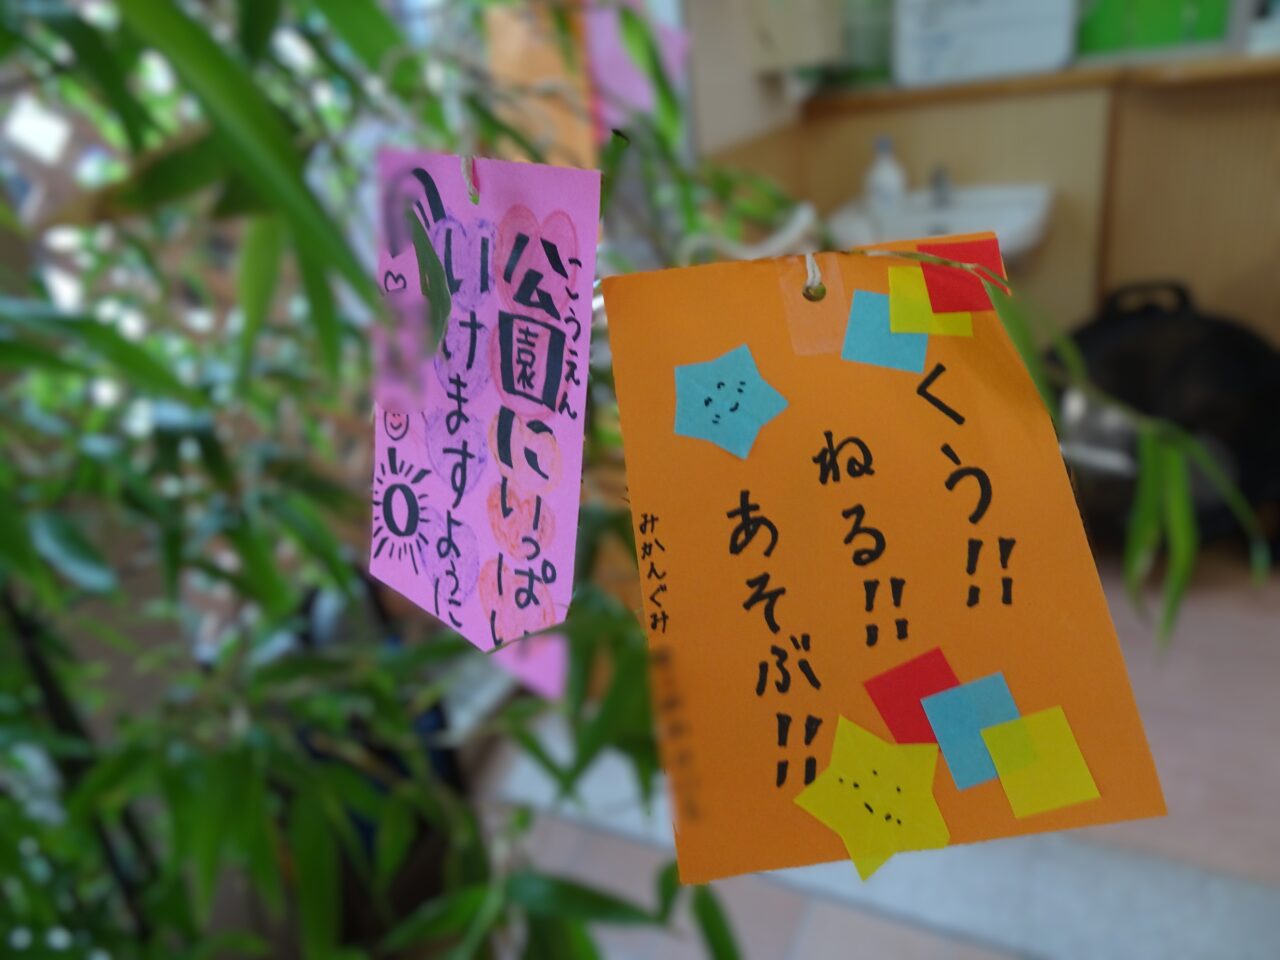 くう!!
ねる!!
あそぶ!!
みかんぐみ
こうえん
公園にいっぱい
いけますように